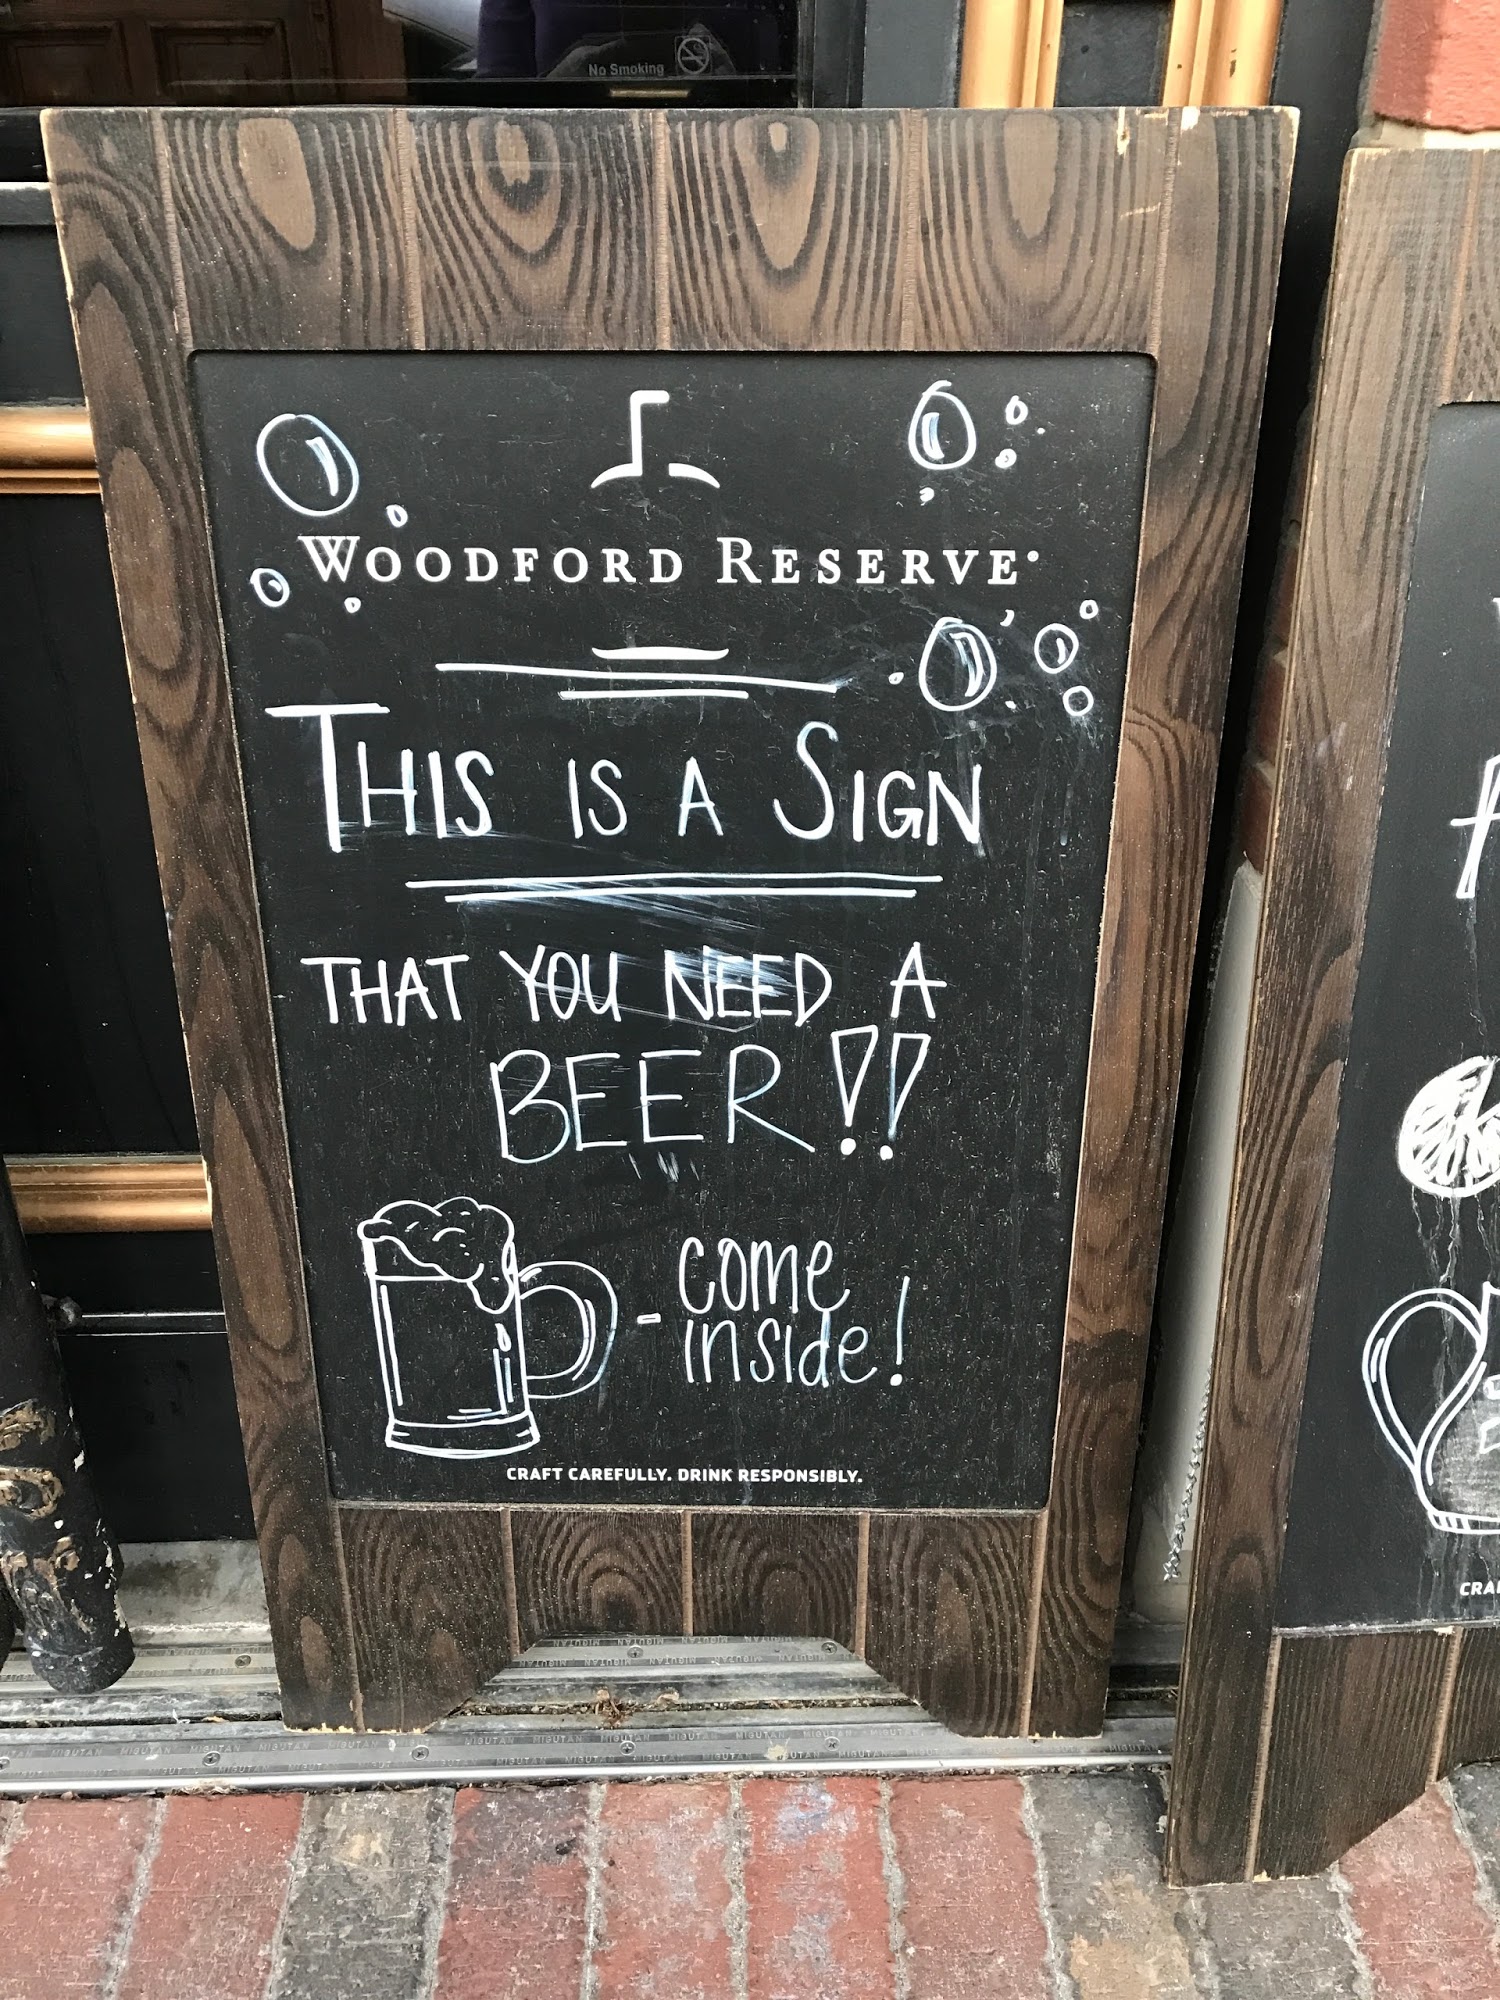 No Smoking
WOODFORD RESERVE
THIS IS A SIGN
THAT YOU NEED A
BEER!!
- come
inside!
CRAFT CAREFULLY. DRINK RESPONSIBLY.
MIGUTAN MIGUTAN MIGUTAN MIGUTAN